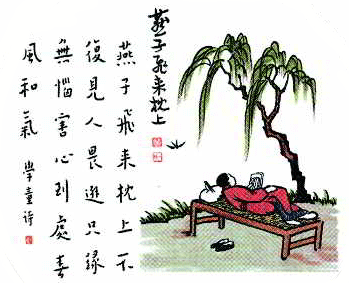 燕子飛来枕上
燕子飛来枕上不
復見人畏避只緣
無惱害心到處春
風和氣 學童詩